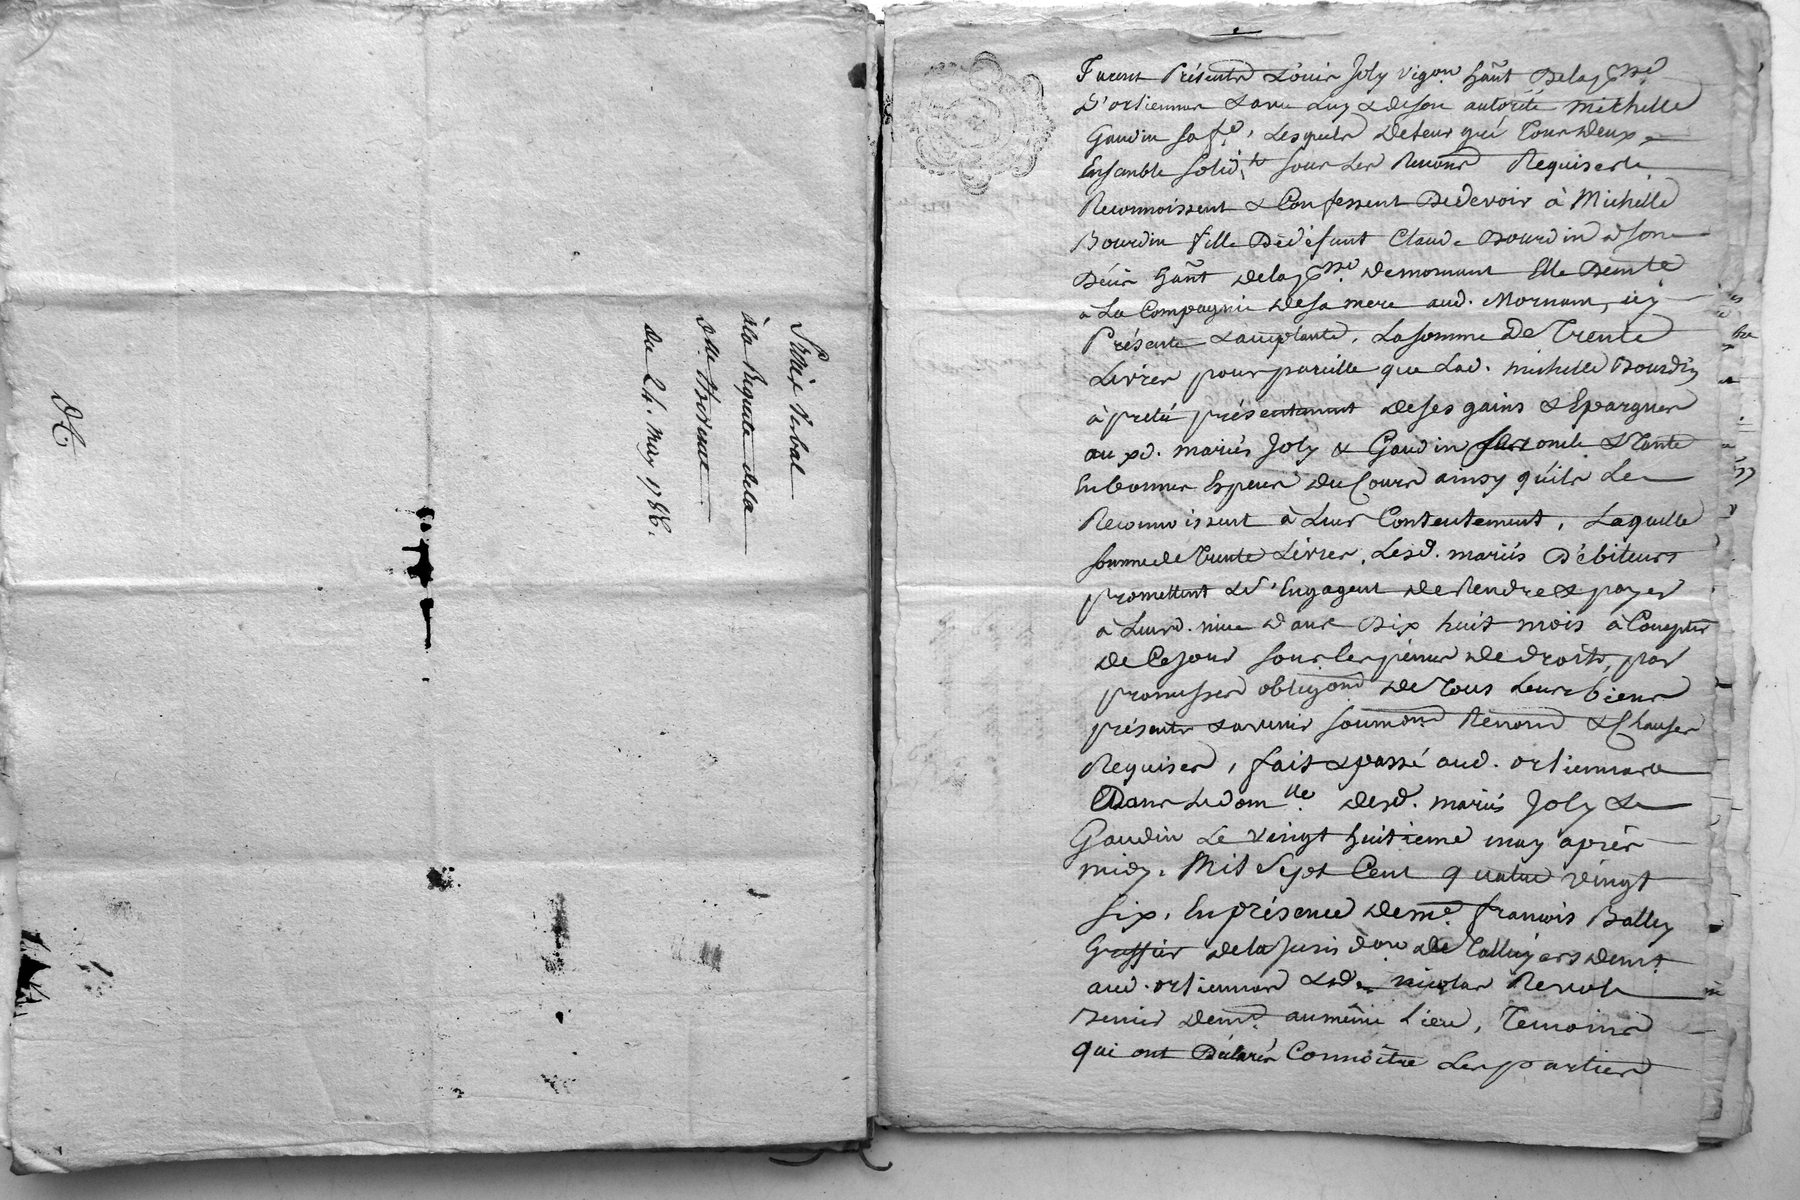 Procès Verbal
à la Requete de la
du 24. may 1786.
Furent Présents Louis Joly vigon hañt de la p.sse
D'orliennas & avec Luy & de son autorité Michelle
Gaudin sa fe, Lesquels de leur gré Tous deux
Ensemble solid.t sous les Renons Requises
Reconnoissent & Confessent De devoir à Michelle
Bourdin fille De défunt Claude Bourdin de son
Décès hañt de la p.sse de mornant Elle Demte
à La Compagnie de sa mere aud. Mornant, icy
Présente & acceptante, La somme De Trente
Livres pour pareille que Lad. michelle Bourdin
à preté présentement de ses gains & Epargnes
aux d. mariés Joly & Gaudin ses oncle & Tante
En bonnes Especes du Cours ainsy qu'ils Le
Reconnoissent à Leur Contentement, Laquelle
somme de Trente Livres, Lesd. mariés Débiteurs
promettent & s'Engagent de Rendre & payer
à Leurd. niece dans Dix huit mois à Compter
de Ce jour sous les peines de droits, par
promesses obligons de Tous Leurs biens
présents & avenir soumons Renons & Clauses
Requises, fait & passé aud. orliennas
Dans Le dom.lle desd. mariés Joly &
Gaudin Le vingt huitieme may après
midy, Mil Sept Cent quatre vingt
six, En présence de me. françois Balley
Greffier de la Jurisdon. de Talluyers demt.
aud. orliennas & de nicolas
demt. au même Lieu, Temoins
qui ont Déclarés Connoitre Les parties